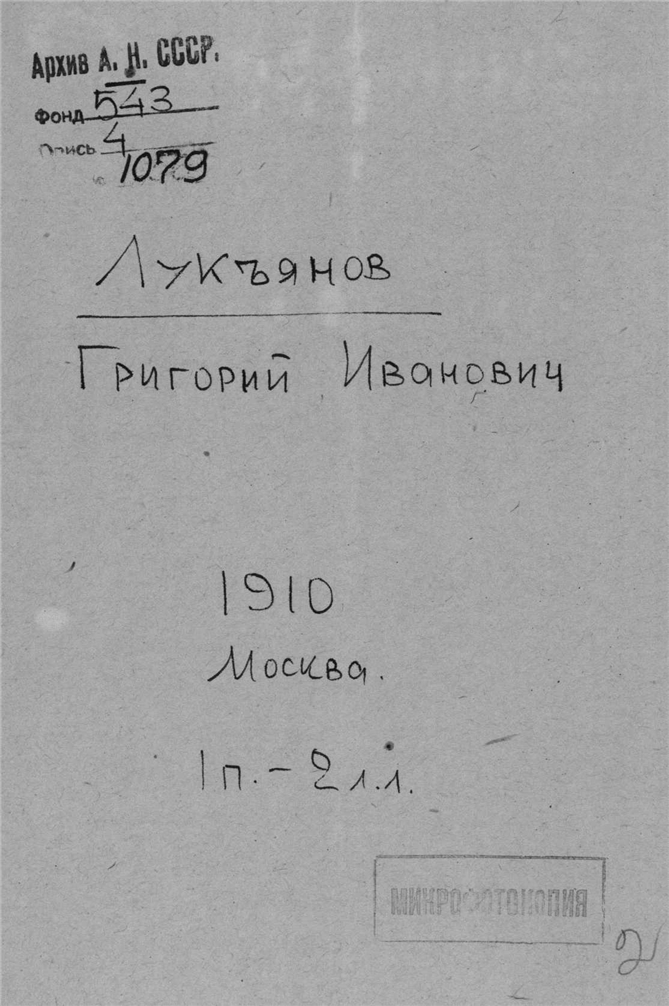 Архив А. Н. СССР.
Фонд 543
Опись 4
№ 1079
Лукъянов
Григорий Иванович
1910
Москва.
1 п. – 2 л.л.
МИКРОФОТОКОПИЯ
2